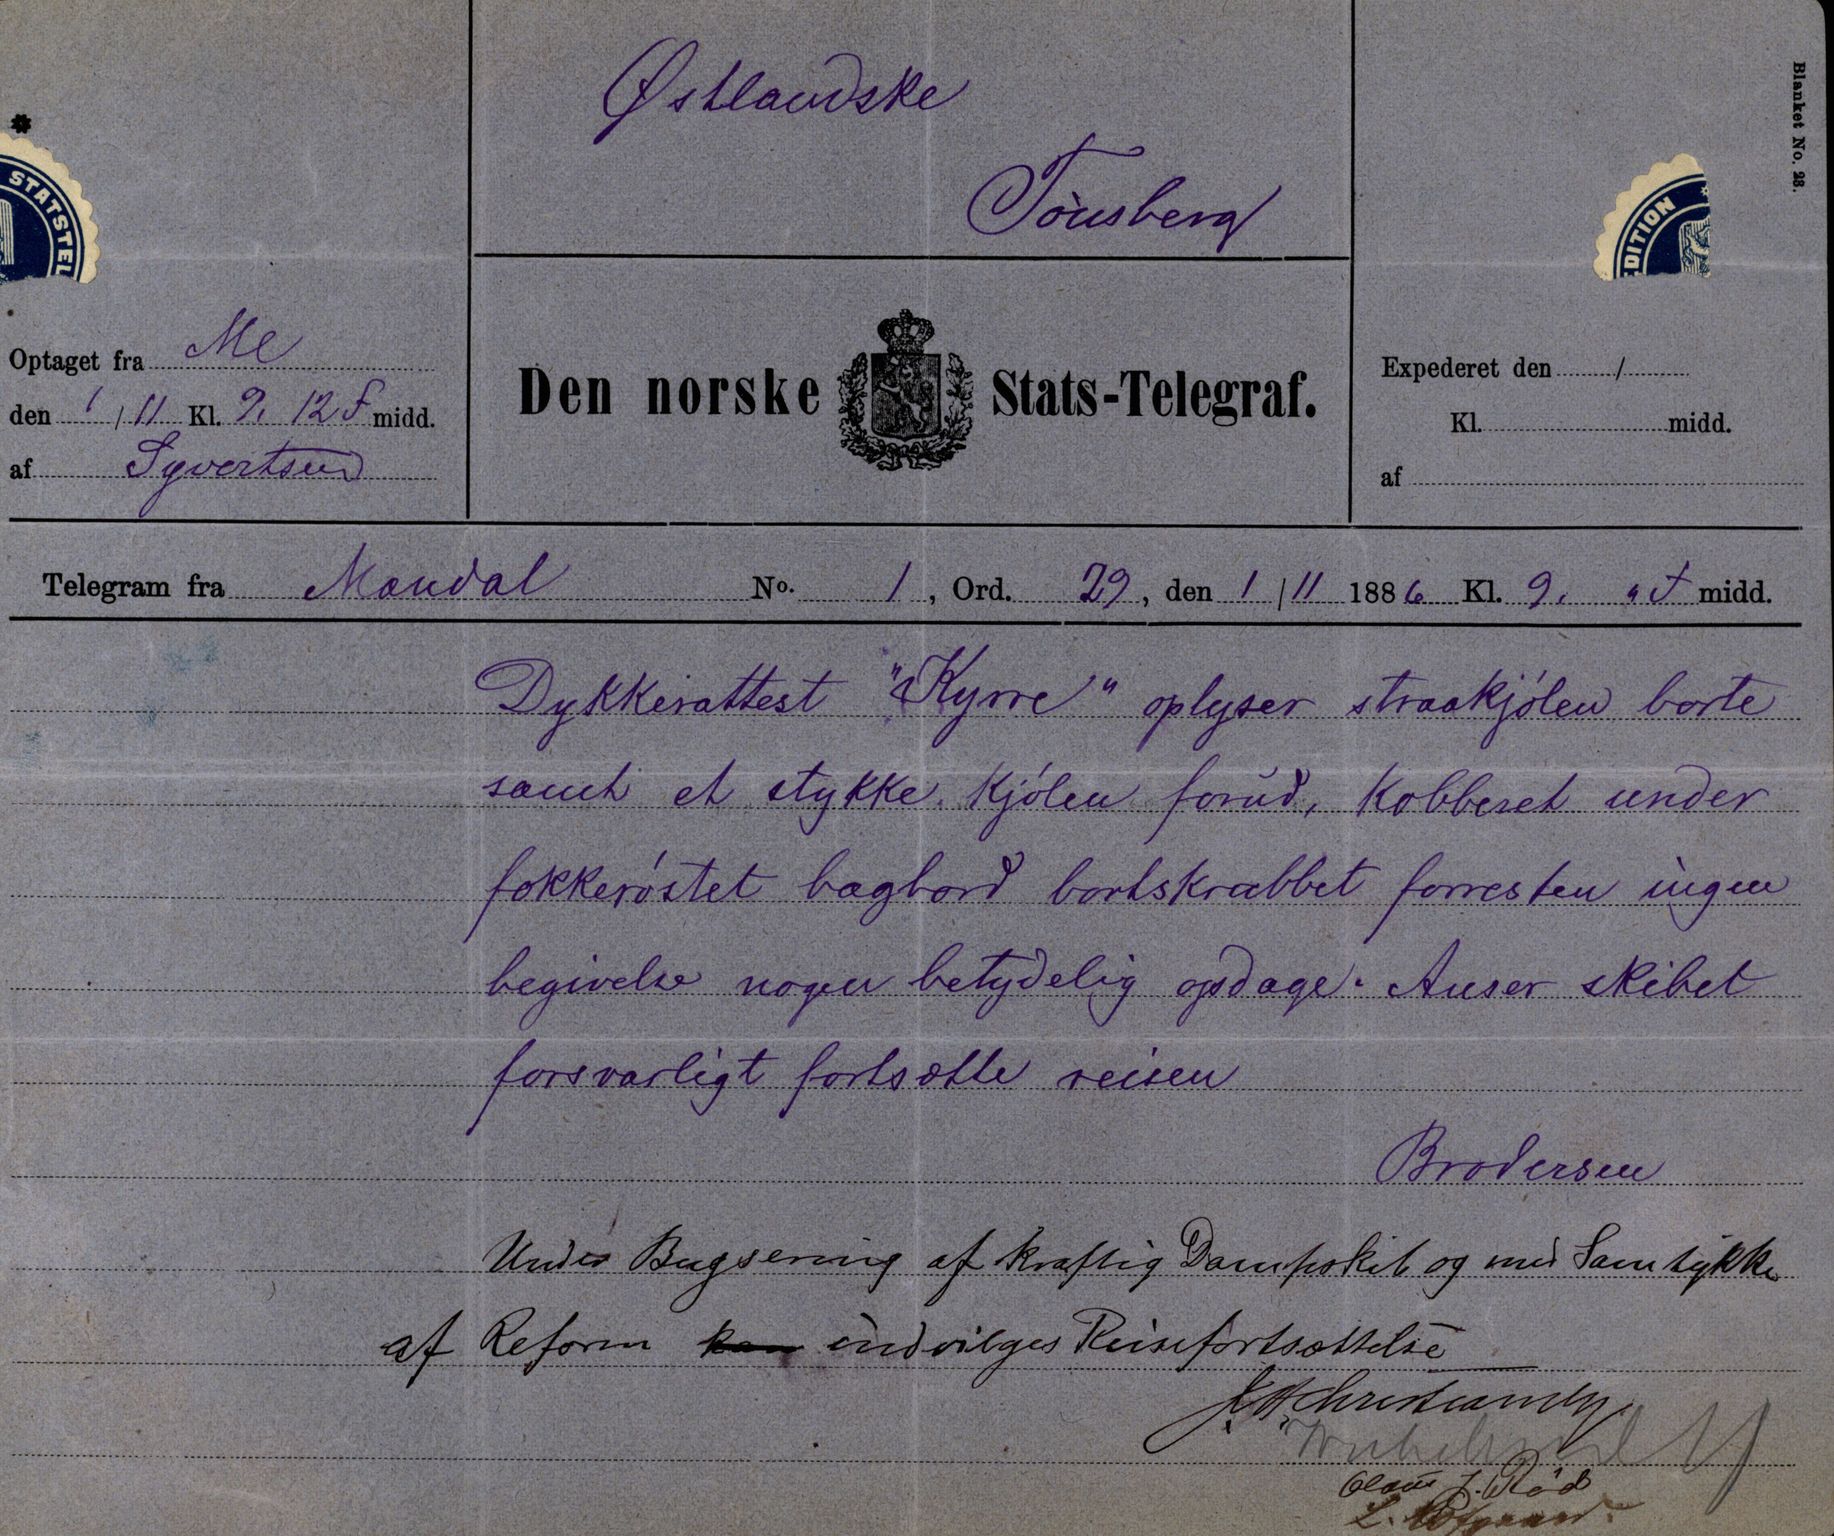 Østlandske
Tønsberg
Blanket No. 28.
STATSTEL
DITION
Optaget fra Me
den 1/11 Kl. 9. 12 F midd.
af Syvertsen
Den norske Stats-Telegraf.
Expederet den /
Kl. midd.
af
Telegram fra Mandal No. 1, Ord. 29, den 1/11 1886 Kl. 9. " F midd.
Dykkerattest "Kyrre" oplyser straakjølen borte
samt et stykke kjølen forud, kobberet under
fokkerøstet bagbord bortskrabbet forresten ingen
begivelse nogen betydelig opdage. Anser skibet
forsvarligt fortsætte reisen
Brodersen
Under Bugsering af kraftig Dampskib og med Samtykke
af Reform kan indvilges Reisefortsættelse
Claus J. Rød